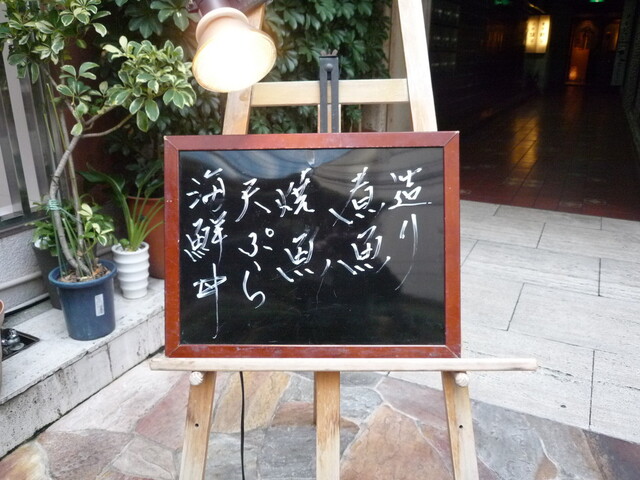 造り
煮魚
焼魚
天ぷら
海鮮丼